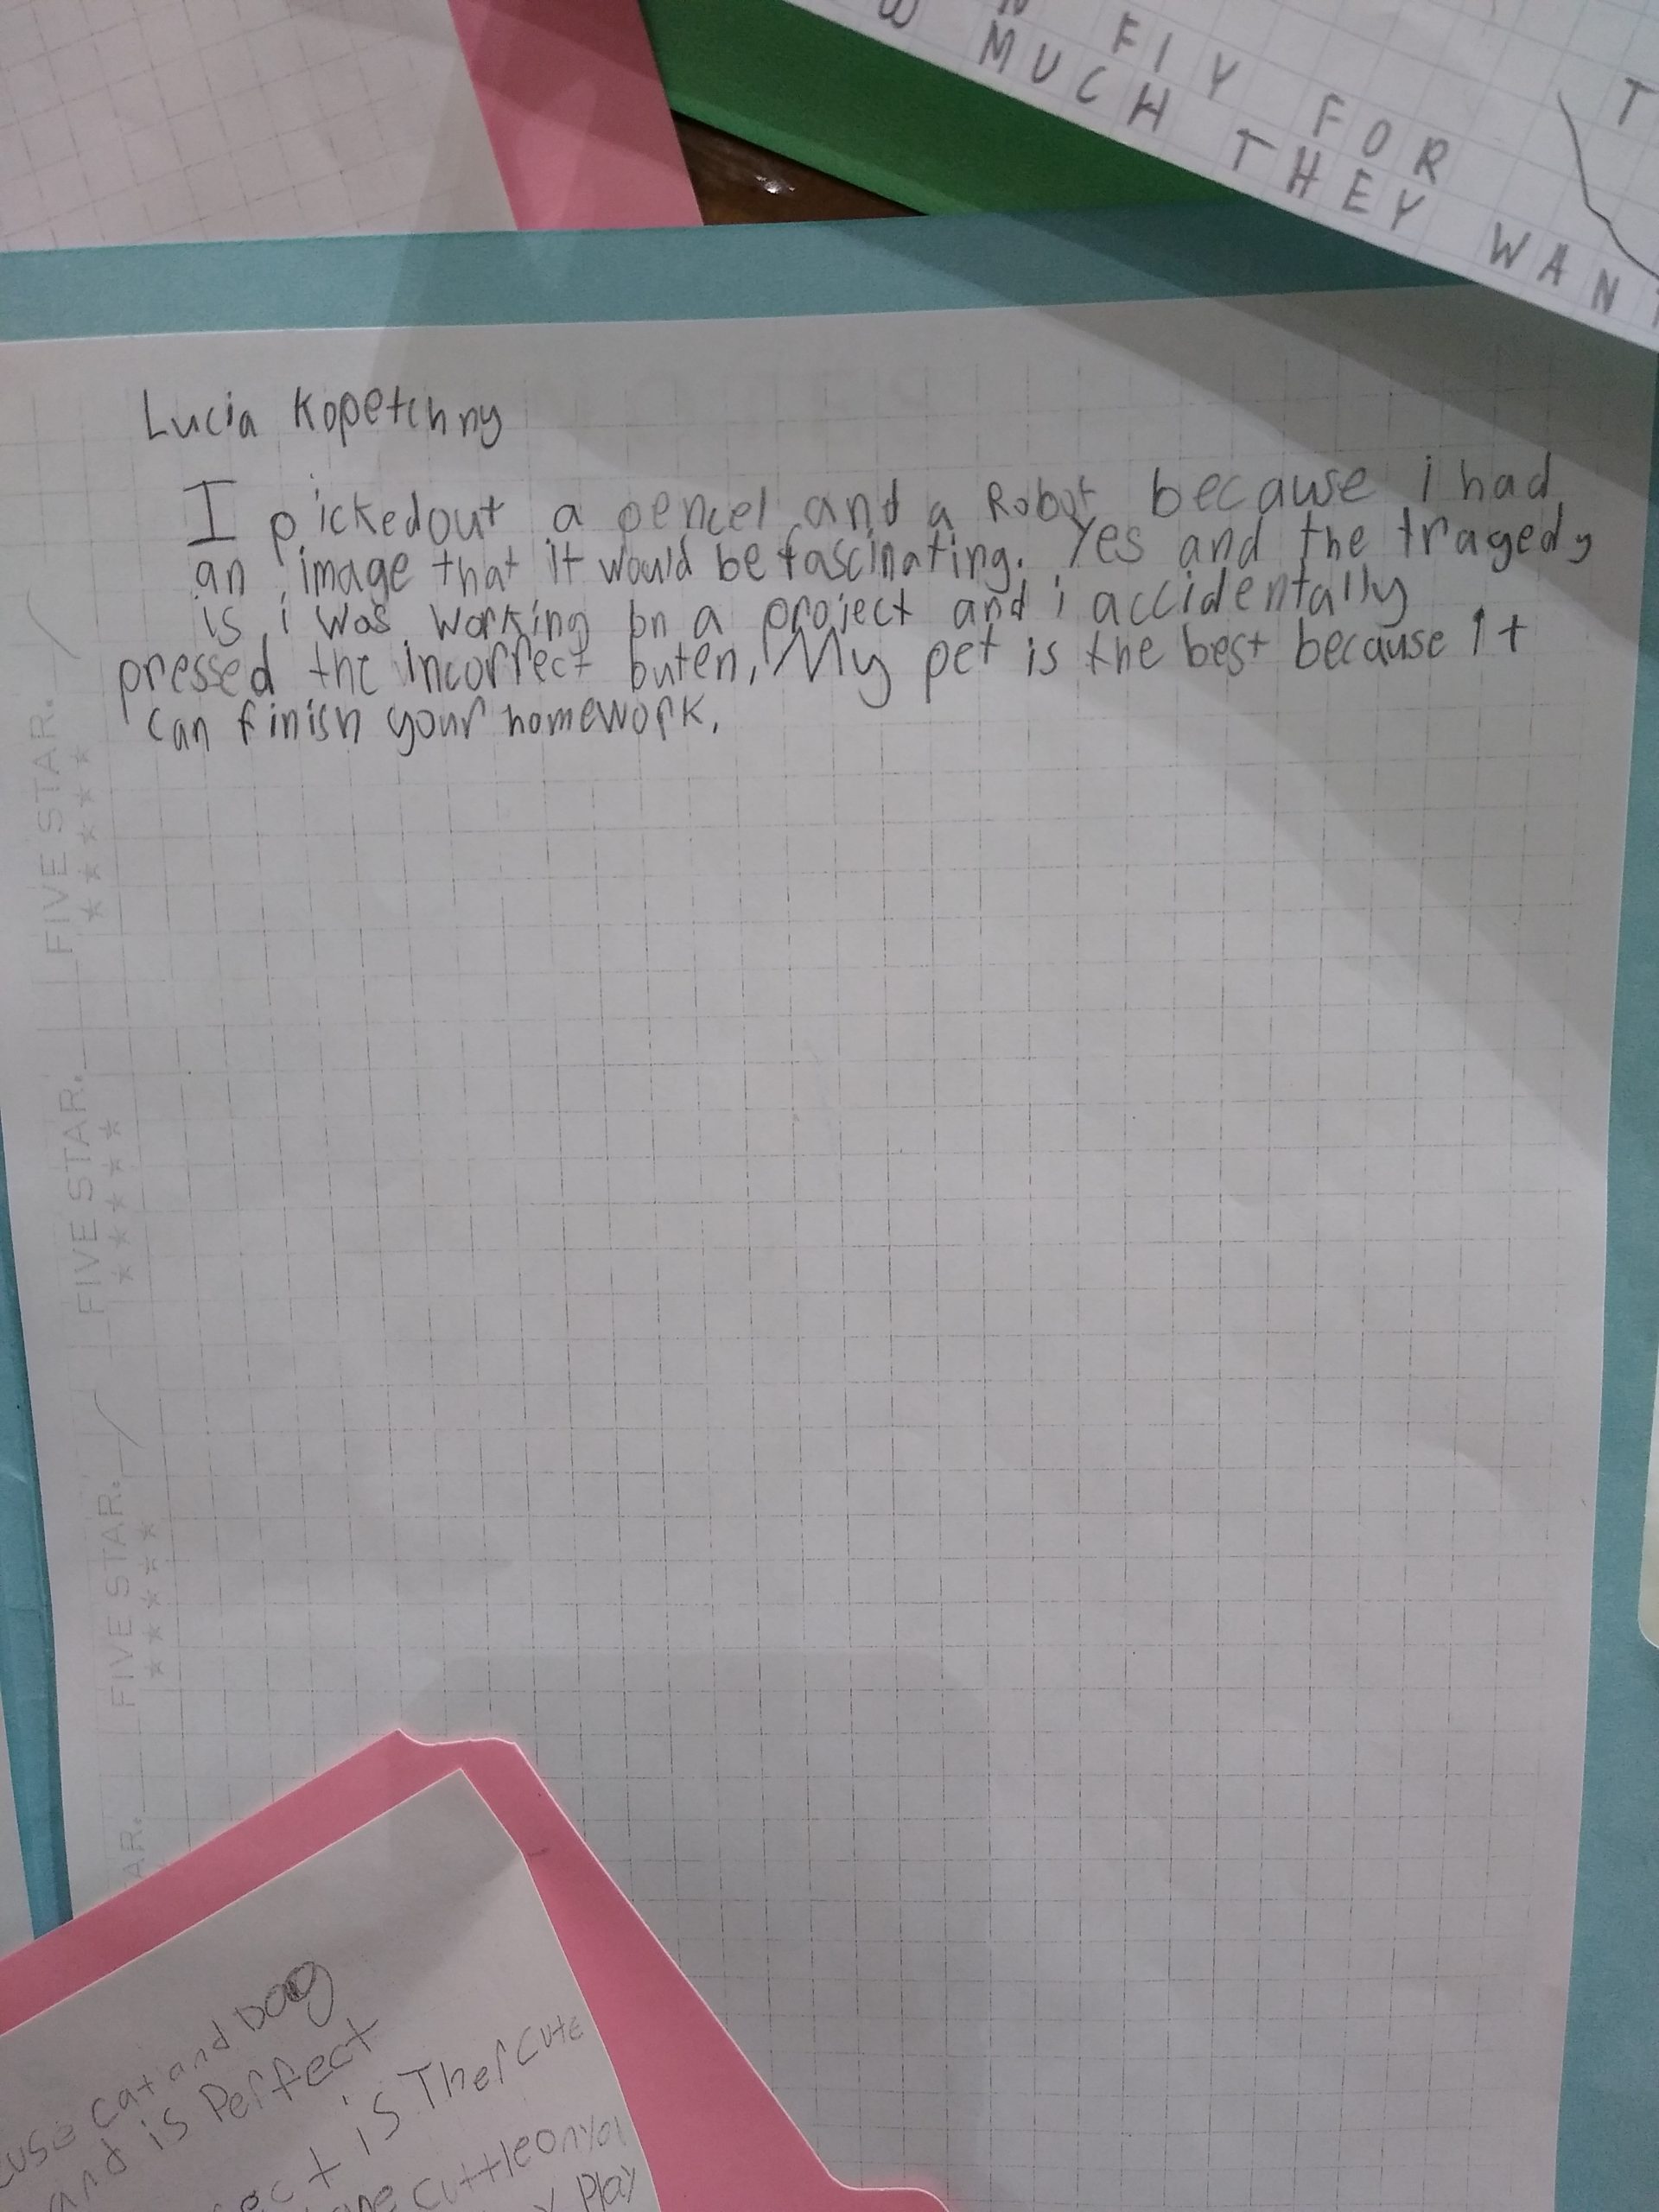 FIY FOR
MUCH THEY WAN
T
Lucia Kopetchny
I pickedout a pencel and a Robot because i had
an image that it would be fascinating. Yes and the tragedy
is i was working on a project and i accidentally
pressed the incorrect buten, My pet is the best because it
can finish your homework.
FIVE STAR.
FIVE STAR.
FIVE STAR.
AR.
cat and Dog
and is Perfect
is Ther cute
cuttleonyou
Play